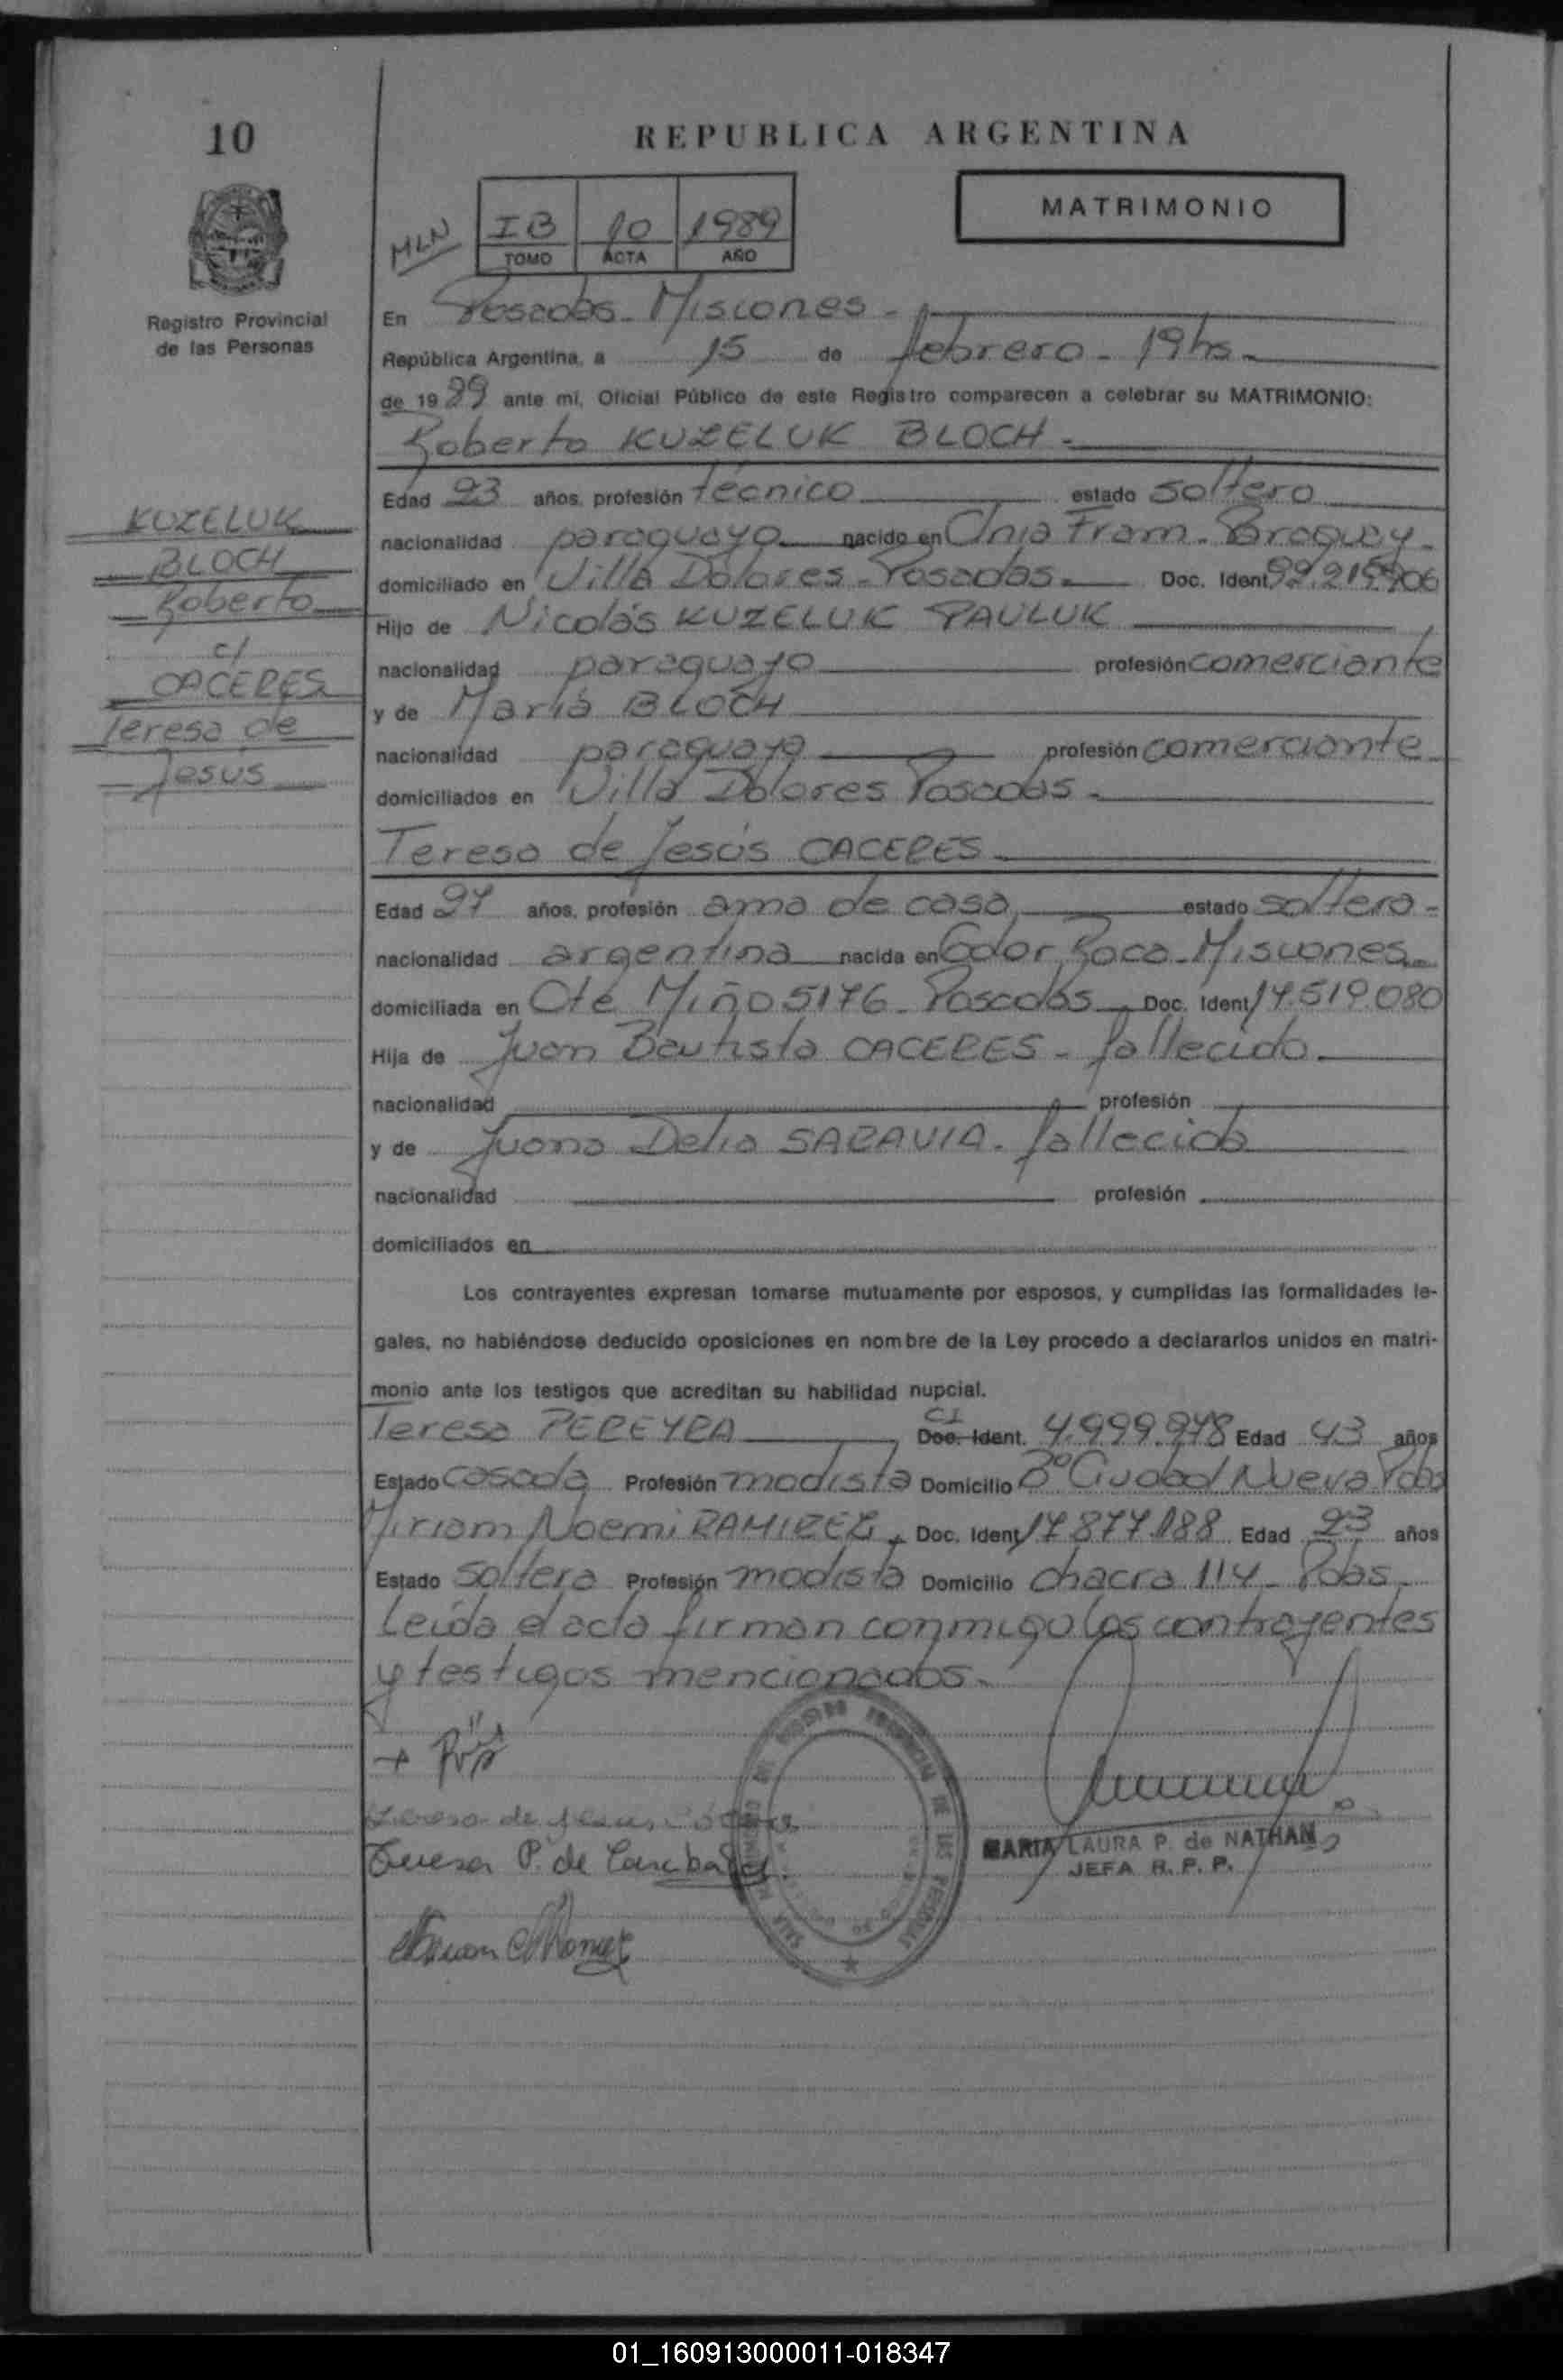 10
REPUBLICA ARGENTINA
MATRIMONIO
MLN
IB 10 1989
TOMO ACTA AÑO
Registro Provincial
de las Personas
En Posadas - Misiones -
República Argentina, a 15 de febrero - 19 hs -
de 1989 ante mi, Oficial Público de este Registro comparecen a celebrar su MATRIMONIO:
Roberto KUZELUK BLOCH -
Edad 23 años, profesión técnico estado soltero
nacionalidad paraguaya nacido en Cnia Fram - Paraguay -
domiciliado en Villa Dolores - Posadas - Doc. Ident. 92.215.906
Hijo de Nicolás KUZELUK PAULUK
nacionalidad paraguayo profesión comerciante
y de María BLOCH
nacionalidad paraguaya profesión comerciante
domiciliados en Villa Dolores Posadas -
KUZELUK
BLOCH
Roberto
c/
CACERES
Teresa de
Jesús
Teresa de Jesús CACERES
Edad 27 años, profesión ama de casa estado soltera -
nacionalidad argentina nacida en Gdor. Roca - Misiones
domiciliada en Cte Miño 5176 - Posadas - Doc. Ident. 14.519.080
Hija de Juan Bautista CACERES - fallecido
nacionalidad profesión
y de Juana Delia SARAVIA - fallecida
nacionalidad profesión
domiciliados en
Los contrayentes expresan tomarse mutuamente por esposos, y cumplidas las formalidades le-
gales, no habiéndose deducido oposiciones en nombre de la Ley procedo a declararlos unidos en matri-
monio ante los testigos que acreditan su habilidad nupcial.
Teresa PEREYRA CI Doc. Ident. 4.999.978 Edad 43 años
Estado casada Profesión modista Domicilio Bº Ciudad Nueva Pdas
Miriam Noemi RAMIREZ - Doc. Ident. 17.877.188 Edad 23 años
Estado soltera Profesión modista Domicilio chacra 114 - Pdas
Leída el acta firman conmigo los contrayentes
y testigos mencionados -
Teresa de Jesus
Teresa P. de
MARIA LAURA P. de NATHAN
JEFA R. P. P.
01_160913000011-018347